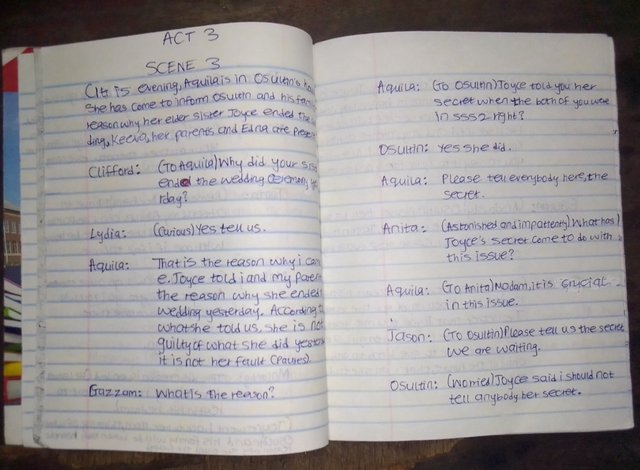 ACT 3
SCENE 3
(It is evening, Aquila is in Osultin's
She has come to inform Osultin and his
reason why her elder sister Joyce ended the
ding, Keeva, her parents and Edna are
Clifford: (To Aquila) Why did your
ended the wedding ceremony
rday?
Lydia: (Curious) Yes tell us.
Aquila: That is the reason why i
e. Joyce told i and my
the reason why she ended
wedding yesterday. According
what she told us, she is not
guilty of what she did
it is not her fault (Pauses).
Gazzam: What is the reason?
Aquila: (To Osultin) Joyce told you her
secret when the both of you were
in SSS2 right?
Osultin: Yes she did.
Aquila: Please tell everybody here, the
secret.
Anita: (Astonished and impatiently) What has
Joyce's secret come to do with
this issue?
Aquila: (To Anita) Madam, it is crucial
in this issue.
Jason: (To Osultin) Please tell us the secret
we are waiting.
Osultin: (Worried) Joyce said i should not
tell anybody her secret.